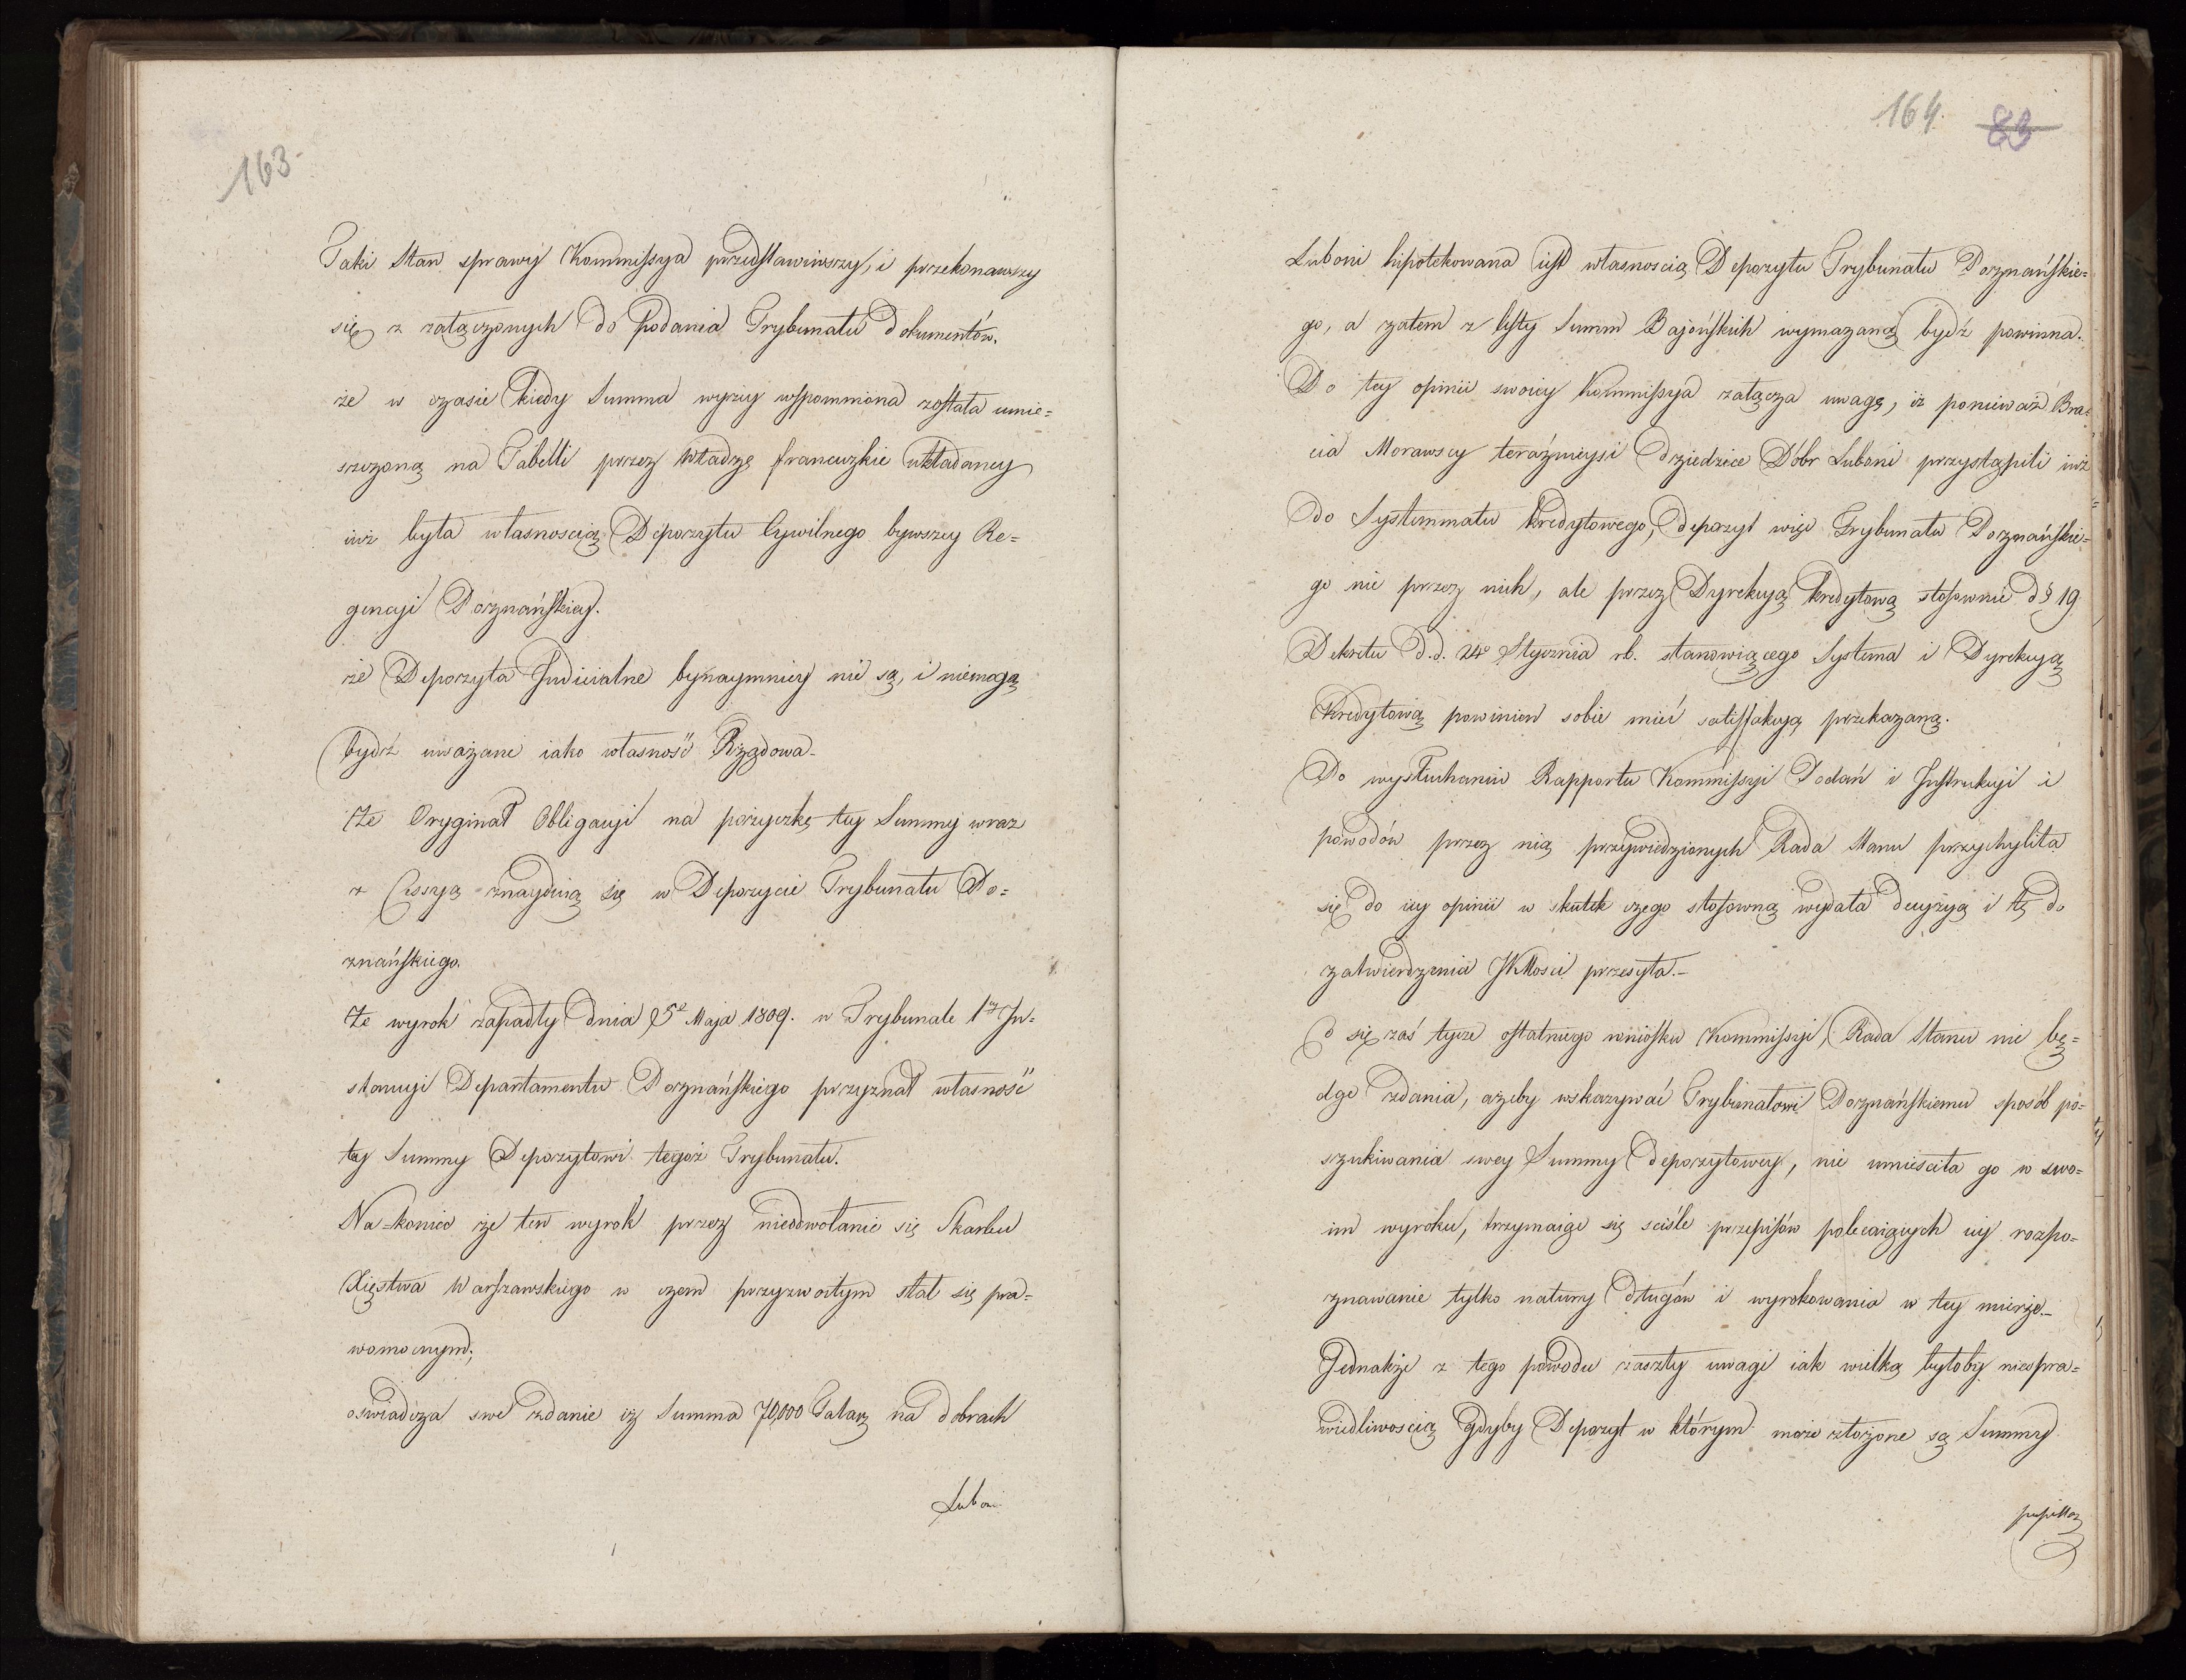 163
Taki Stan sprawy Kommissya przedstawiwszy, i przekonawszy
się z załączonych do Podania Trybunału dokumentów.
że w czasie kiedy Summa wyżey wspommiona została umie=
szczoną na Tabelli przez Władzę francuzkie układaney
iuż była własnoscią Depozytu Cywilnego bywszey Re=
gencji Poznańskiey.
że Depozyta Judicialne bynaymniey nie są, i niemogą
bydź uważane iako własność Rządowa.
że Oryginał Obligacyi na pożyczkę tey Summy wraz
z Cessyą znayduią się w Depozycie Trybunału Po=
znańskiego.
że wyrok zapadły dnia 5º Maja 1809. w Trybunale 1ey In=
stancyi Departamentu Poznańskiego przyznał własność
tey Summy Depozytowi tegoż Trybunału.
Na-koniec że ten wyrok przez nieodwołanie się Skarbu
Xięstwa Warszawskiego w czem przyzwoitym stał się pra=
womocnym;
oświadcza swe zdanie iż Summa 70,000 Talarz na dobrach
Luboni
164. 83
Luboni hipotekowana iest własnoscią Depozytu Trybunału Poznańskie=
go, a zatem z listy Summ Bajońskich wymazaną bydź powinna.
Do tey opinii swoiey Kommissya załącza uwagę, iż ponieważ Bra=
cia Morawscy teraźnieysi dziedzice Dóbr Luboni przystąpili iuż
do Systemmatu kredytowego, depozyt więc Trybunału Poznańskie=
go nie przez nich, ale przez Dyrekcyą kredytową stosownie d § 19
Dekretu d.d. 24º Stycznia rb. stanowiącego Systema i Dyrekcyą
Kredytową powinien sobie mieć satisfakcyą przekazaną.
Po wysłuchaniu Rapportu Kommissyi Podań i Instrukcyi i
powodów przez nią przywiedzionych Rada Stanu przychyliła
się do iey opinii w skutek czego stosowną wydała decyzyą i tę do
zatwierdzenia JKMosci przesyła.-
Co się zaś tycze ostatniego wniosku Kommissyi, Rada Stanu nie bę=
dąc zdania, ażeby wskazywać Trybunałowi Poznańskiemu sposób po=
szukiwania swey Summy depozytowey, nie umieściła go w swo=
im wyroku, trzymaiąc się ściśle przepisów polecaiących iey rozpo=
znawanie tylko natury długów i wyrokowania w tey mierze.-
Jednakże z tego powodu zaszły uwagi iak wielką byłoby niespra=
wiedliwoscią gdyby Depozyt w którym może złożone są Summy
pupillar